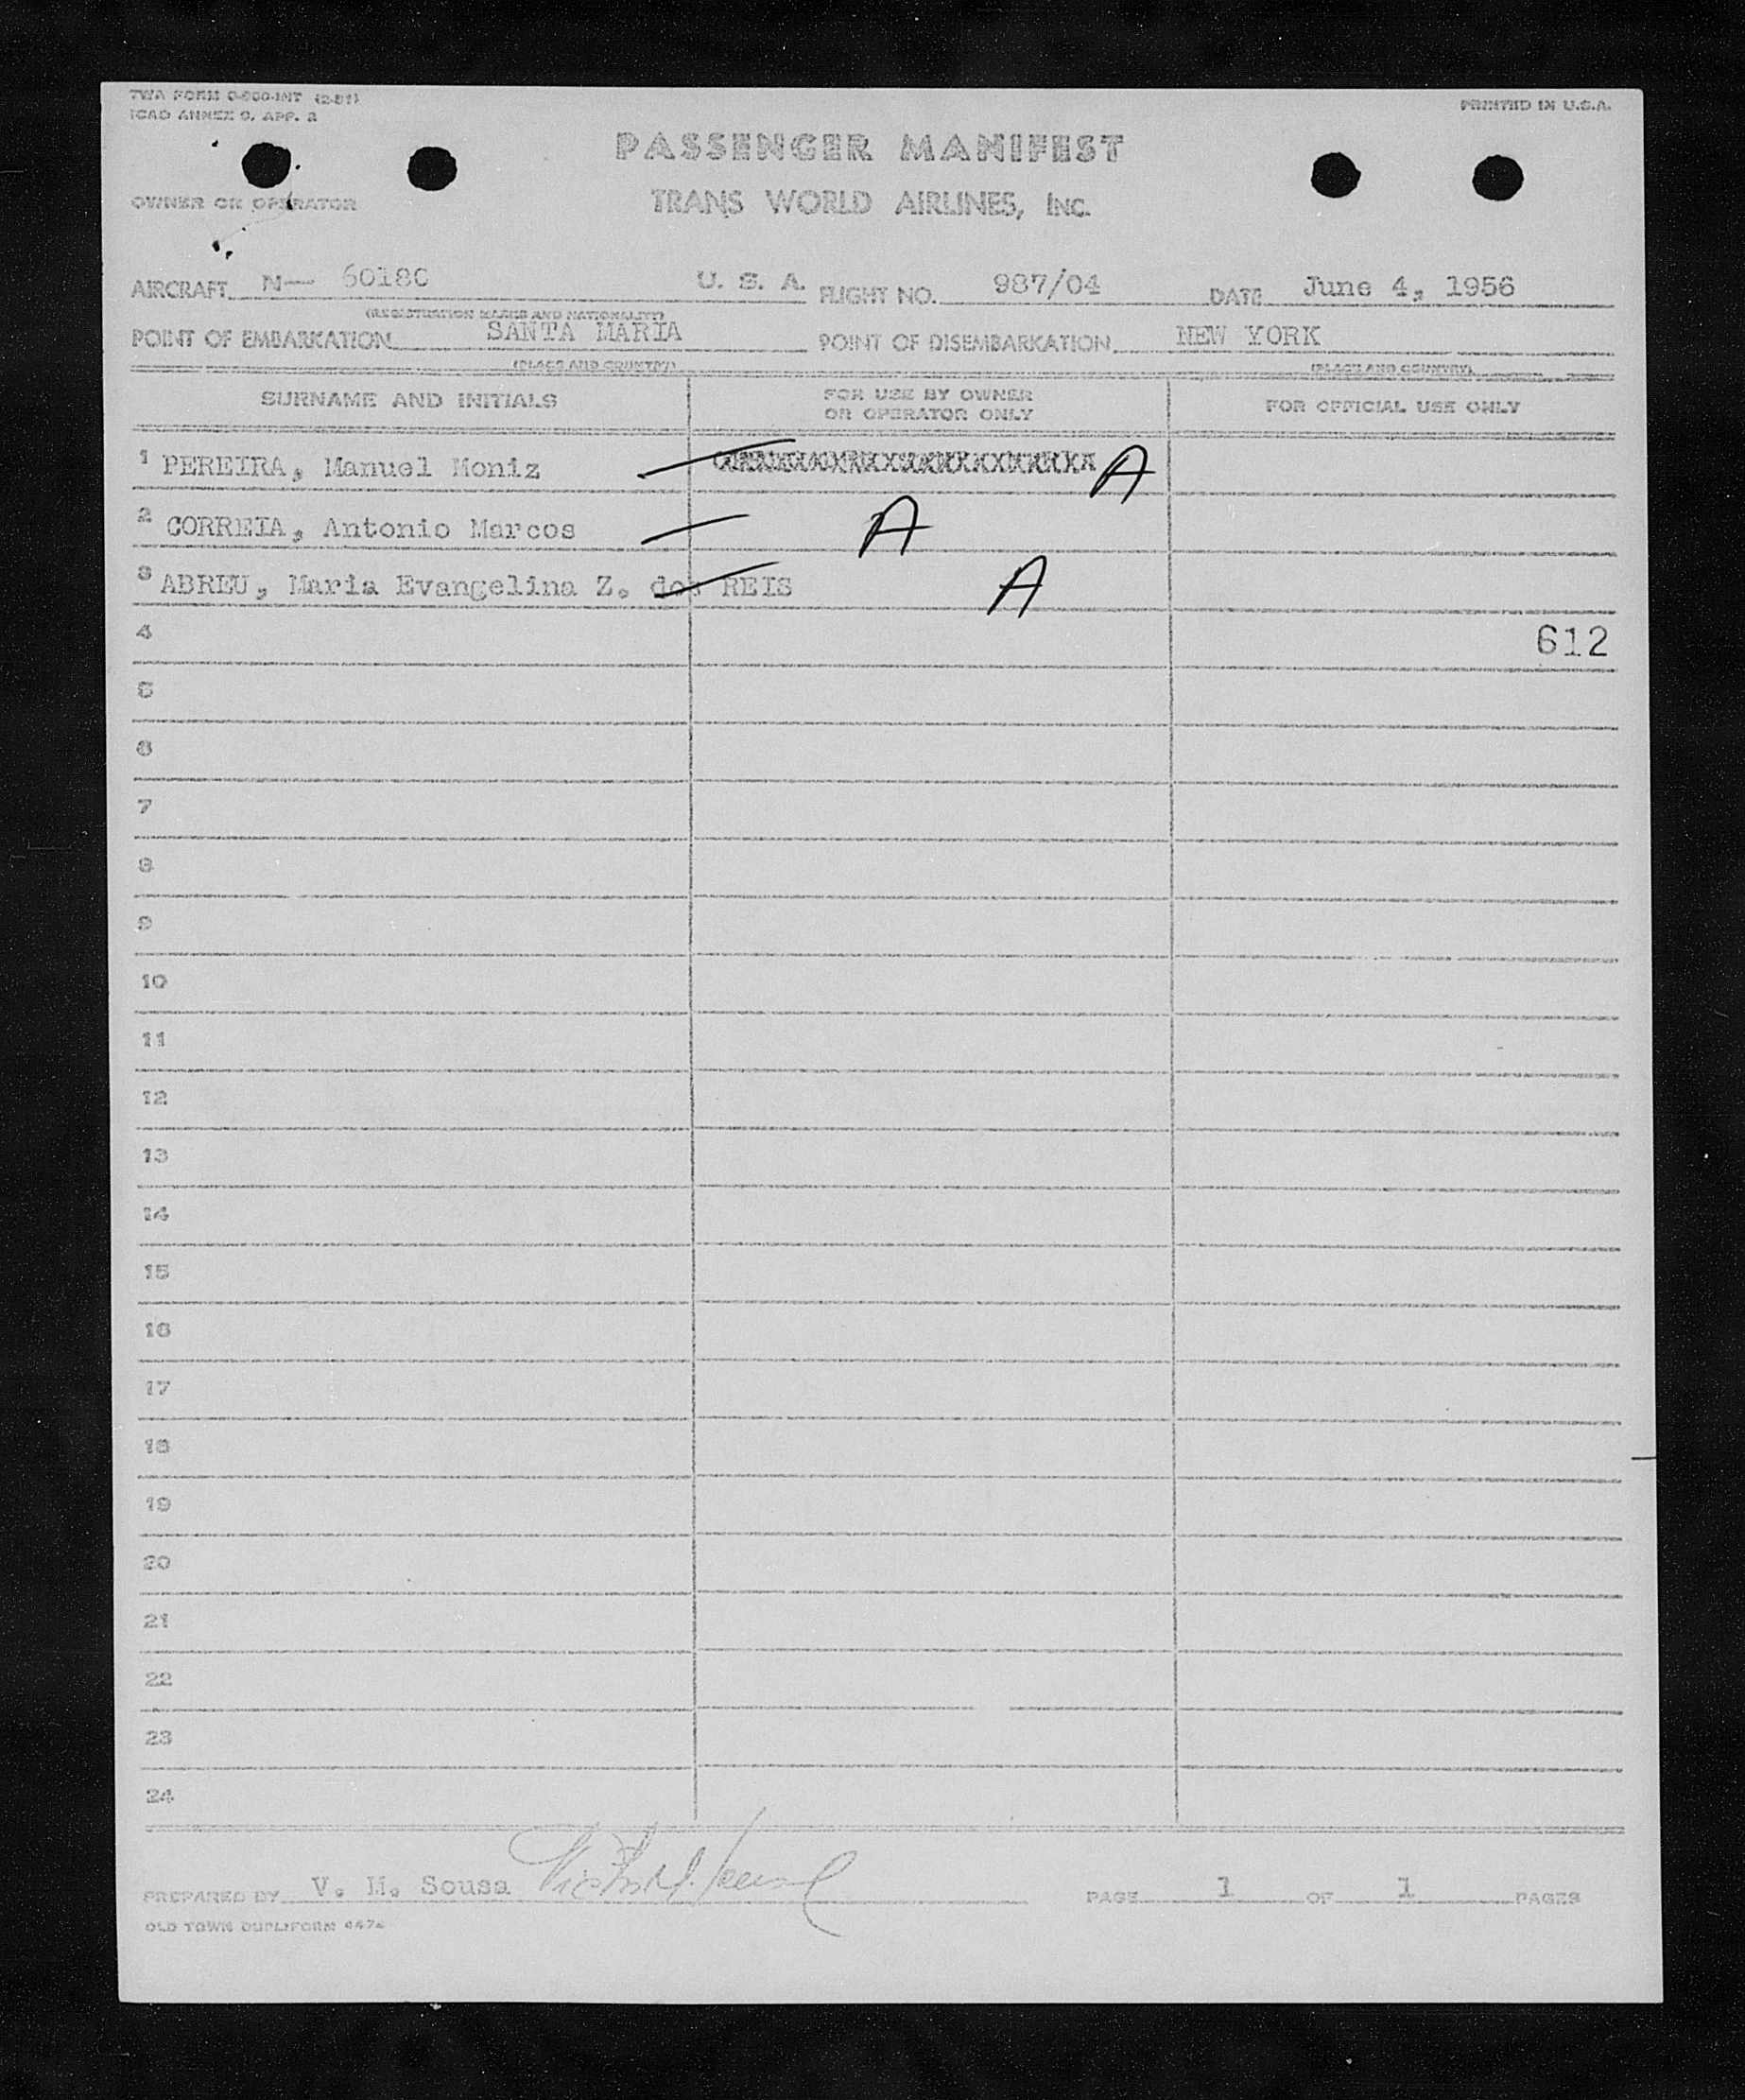 TWA FORM O-900-INT (2-51)
ICAO ANNEX 9, APP. 2
PRINTED IN U.S.A.
PASSENGER MANIFEST
OWNER OR OPERATOR
TRANS WORLD AIRLINES, INC.
AIRCRAFT N— 6018C U. S. A. FLIGHT NO. 987/04 DATE June 4, 1956
(REGISTRATION MARKS AND NATIONALITY)
POINT OF EMBARKATION SANTA MARIA POINT OF DISEMBARKATION NEW YORK
(PLACE AND COUNTRY) (PLACE AND COUNTRY)
SURNAME AND INITIALS FOR USE BY OWNER OR OPERATOR ONLY FOR OFFICIAL USE ONLY
1 PEREIRA, Manuel Moniz A
2 CORREIA, Antonio Marcos A
3 ABREU, Maria Evangelina Z. dos REIS A
4 612
5
6
7
8
9
10
11
12
13
14
15
16
17
18
19
20
21
22
23
24
PREPARED BY V. M. Sousa PAGE 1 OF 1 PAGES
OLD TOWN DUPLIFORM